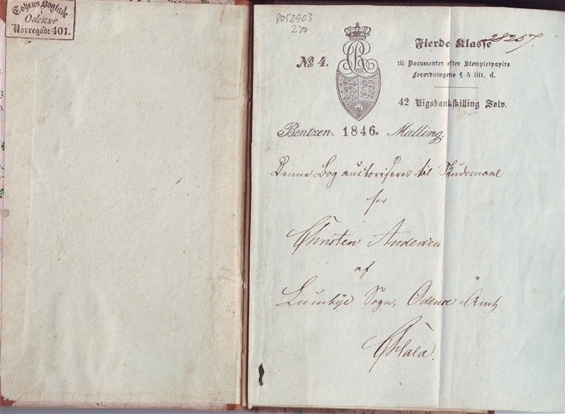 Boglade
i
Odense
Norregade 401.
8052903
270
28257.
No 4.
Fierde Klasse
til Documenter efter Stempletpapirs
Forordningens § 5 litt. d.
42 Rigsbankskilling Sølv.
Bentzen. 1846. Malling.
Denne Bog autoriseres til Skudsmaal
for
Christen Andersen
af
Lumbye Sogn, Odense Amt